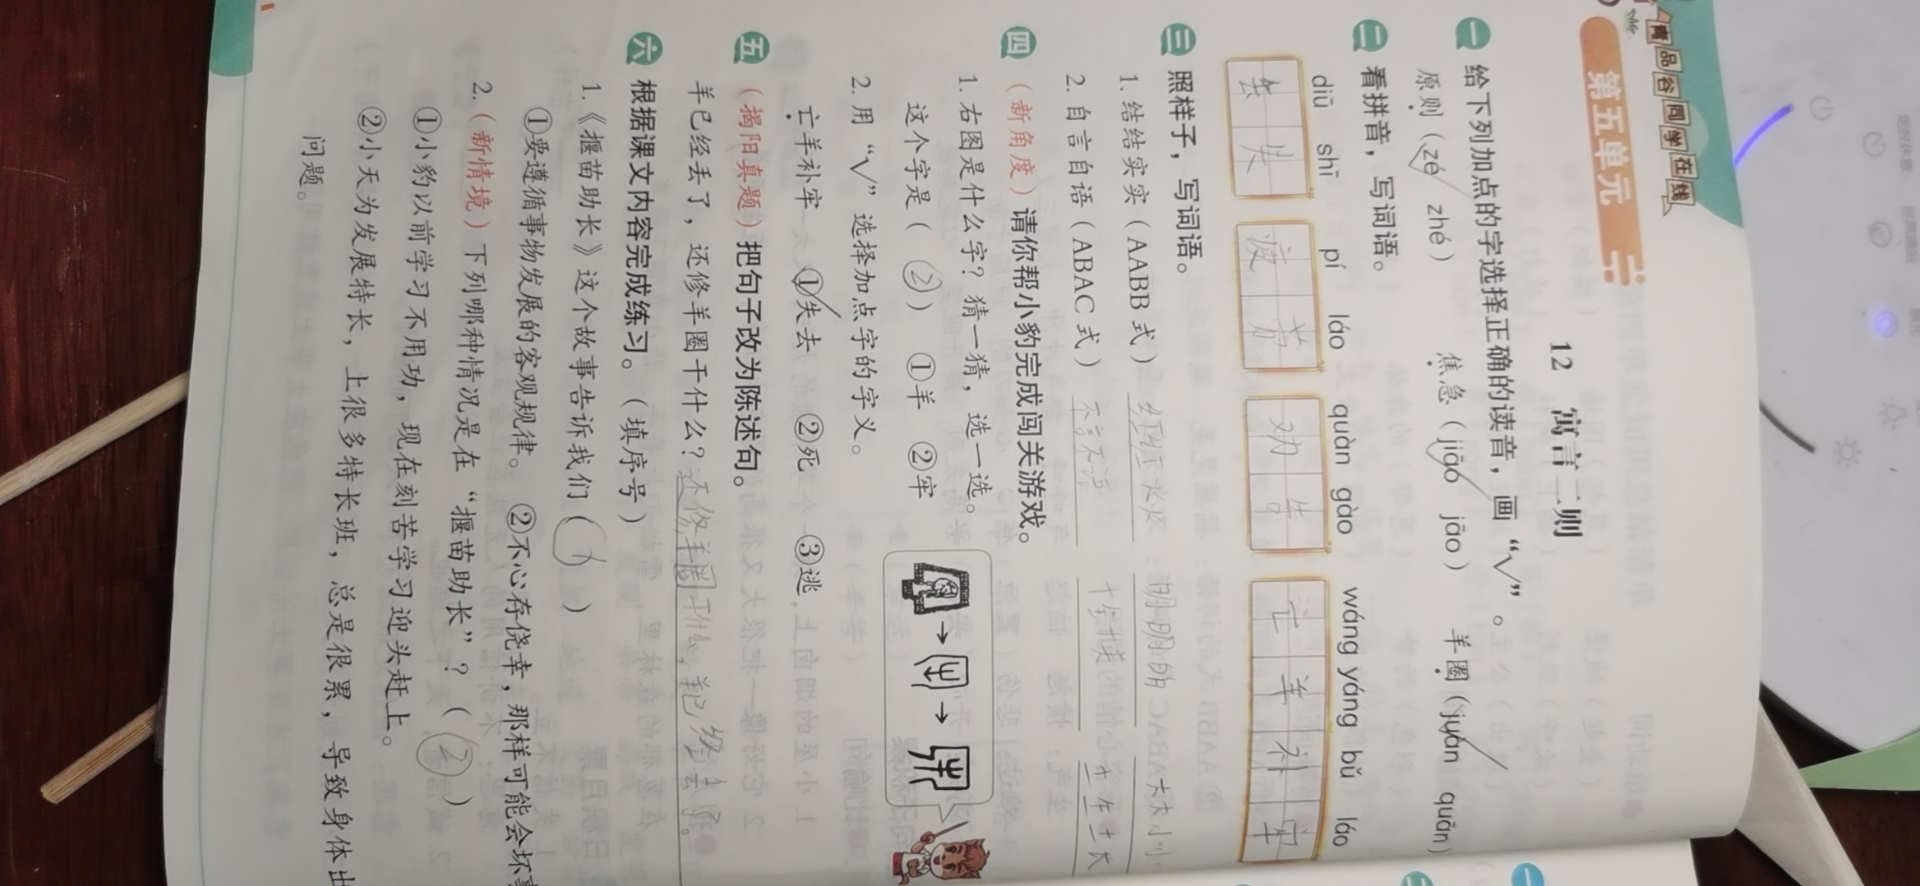 青品谷同学在线
第五单元
12 寓言二则
一 给下列加点的字选择正确的读音，画“√”。
原则（zé√ zhé） 焦急（jiāo√ jāo） 羊圈（juàn√ quān）
二 看拼音，写词语。
diū shī pí láo quàn gào wáng yáng bǔ láo
丢失 疲劳 劝告 亡羊补牢
三 照样子，写词语。
1. 结结实实（AABB 式） 明明明 大大小小
2. 自言自语（ABAC 式） 不言不语
四 （新角度）请你帮小豹完成闯关游戏。
1. 右图是什么字？猜一猜，选一选。
这个字是（②） ①羊 ②牢
2. 用“√”选择加点字的字义。
亡羊补牢 ①失去√ ②死 ③逃
五 （揭阳真题）把句子改为陈述句。
羊已经丢了，还修羊圈干什么？ 不修羊圈干什么，羊已经
六 根据课文内容完成练习。（填序号）
1.《揠苗助长》这个故事告诉我们（ ）
①要遵循事物发展的客观规律。 ②不心存侥幸，那样可能会坏
2.（新情境）下列哪种情况是在“揠苗助长”？（②）
①小豹以前学习不用功，现在刻苦学习迎头赶上。
②小天为发展特长，上很多特长班，总是很累，导致身体出
问题。